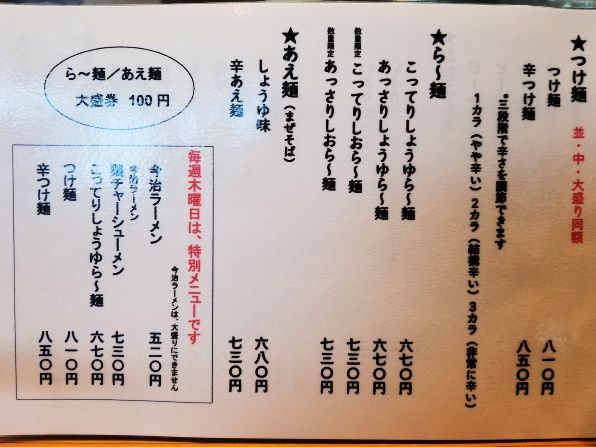 ★つけ麺 並・中・大盛り同額
つけ麺 八一〇円
辛つけ麺 八五〇円
*三段階で辛さを調節できます
1カラ(やや辛い) 2カラ(結構辛い) 3カラ(非常に辛い)
★ら〜麺
こってりしょうゆら〜麺 六七〇円
あっさりしょうゆら〜麺 六七〇円
数量限定 こってりしおら〜麺 七三〇円
数量限定 あっさりしおら〜麺 七三〇円
★あえ麺(まぜそば)
しょうゆ味 六八〇円
辛あえ麺 七三〇円
ら〜麺/あえ麺
大盛券 100円
毎週木曜日は、特別メニューです
今治ラーメンは、大盛りにできません
今治ラーメン 五二〇円
今治ラーメン
鶏チャーシューメン 七三〇円
こってりしょうゆら〜麺 六七〇円
つけ麺 八一〇円
辛つけ麺 八五〇円